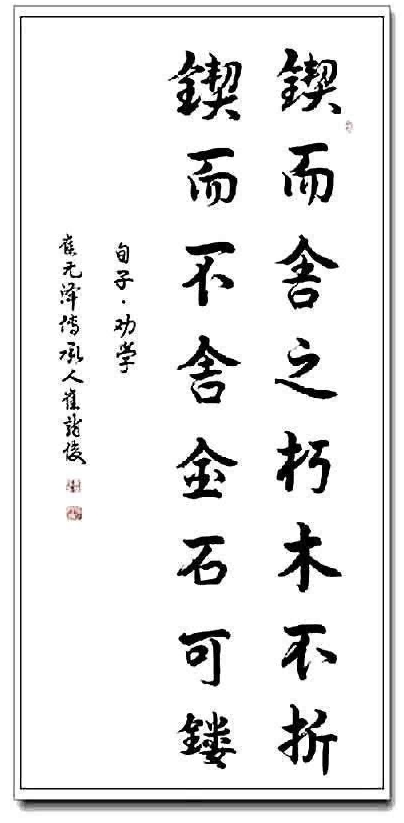 锲而舍之朽木不折
锲而不舍金石可镂
荀子·劝学
崔元泽传承人崔龍俊